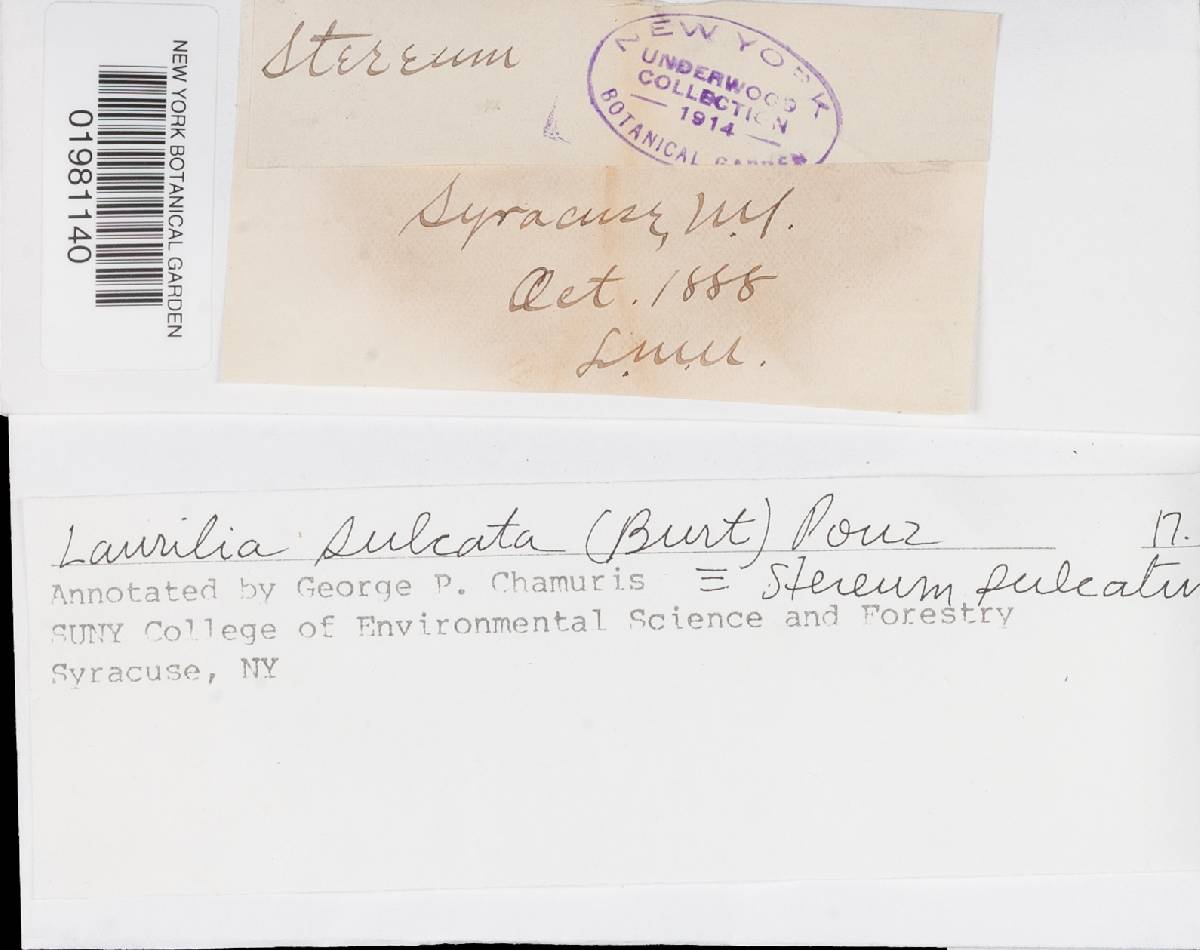 NEW YORK BOTANICAL GARDEN
01981140
Stereum
NEW YORK
UNDERWOOD
COLLECTION
1914
BOTANICAL GARDEN
Syracuse, N.Y.
Oct. 1888
L.M.U.
Laurilia sulcata (Burt) Pouz 17.
Annotated by George P. Chamuris ≡ Stereum sulcatu
SUNY College of Environmental Science and Forestry
Syracuse, NY